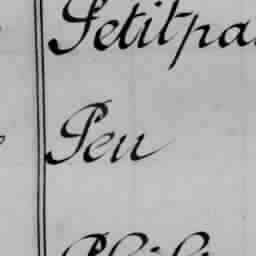 Petitpa
Peu